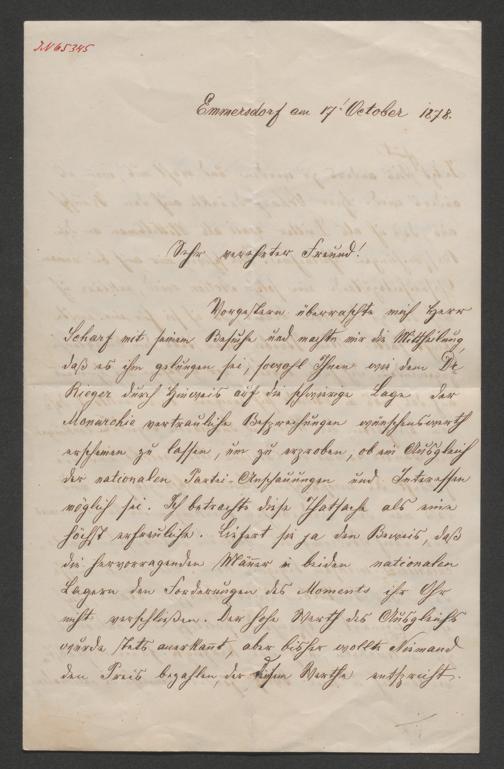 J.N 65345
Emmersdorf am 17t October 1878.
Sehr verehrter Freund!
Vorgestern überraschte mich Herr
Scharf mit seinem Besuche und machte mir die Mittheilung,
daß es ihm gelungen sei, sowohl Ihnen wie dem Dr
Rieger durch Hinweis auf die schwierige Lage der
Monarchie vertrauliche Besprechungen wünschenswerth
erscheinen zu lassen, um zu erproben, ob ein Ausgleich
der nationalen Partei-Anschauungen und Interessen
möglich sei. Ich betrachte diese Thatsache als eine
höchst erfreuliche. Liefert sie ja den Beweis, daß
die hervorragenden Männer in beiden nationalen
Lagern den Forderungen des Moments ihr Ohr
nicht verschließen. Der hohe Werth des Ausgleichs
wurde stets anerkannt, aber bisher wollte Niemand
den Preis bezahlen, der diesem Werthe entspricht.